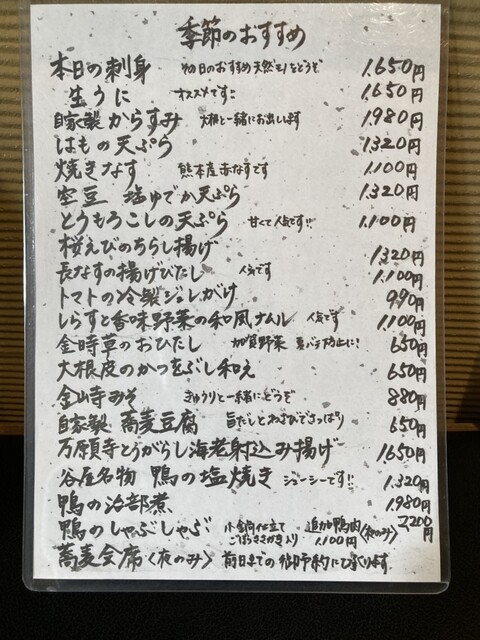 季節のおすすめ
本日の刺身 その日のおすすめ天然モノをどうぞ 1.650円
生うに オススメです!! 1.650円
自家製からすみ 大根と一緒にお出しします 1.980円
はもの天ぷら 1.320円
焼きなす 熊本産赤なすです 1.100円
空豆 塩ゆでか天ぷら 1.320円
とうもろこしの天ぷら 甘くて人気です!! 1.100円
桜えびのちらし揚げ 1.320円
長なすの揚げびたし 人気です 1.100円
トマトの冷製ジュレがけ 990円
しらすと香味野菜の和風ナムル 人気です 1100円
金時草のおひたし 加賀野菜 夏バテ防止に! 650円
大根皮のかつをぶし和え 650円
金山寺みそ きゅうりと一緒にどうぞ 880円
自家製 蕎麦豆腐 旨だしとわさびでさっぱり 650円
万願寺とうがらし海老射込み揚げ 1.650円
谷屋名物 鴨の塩焼き ジューシーです!! 1.320円
鴨の治部煮 1.980円
鴨のしゃぶしゃぶ 小鍋仕立て ごぼうささがき入り 追加鴨肉 1.100円 〈夜のみ〉 2,200円
蕎麦会席〈夜のみ〉 前日までの御予約にて承ります